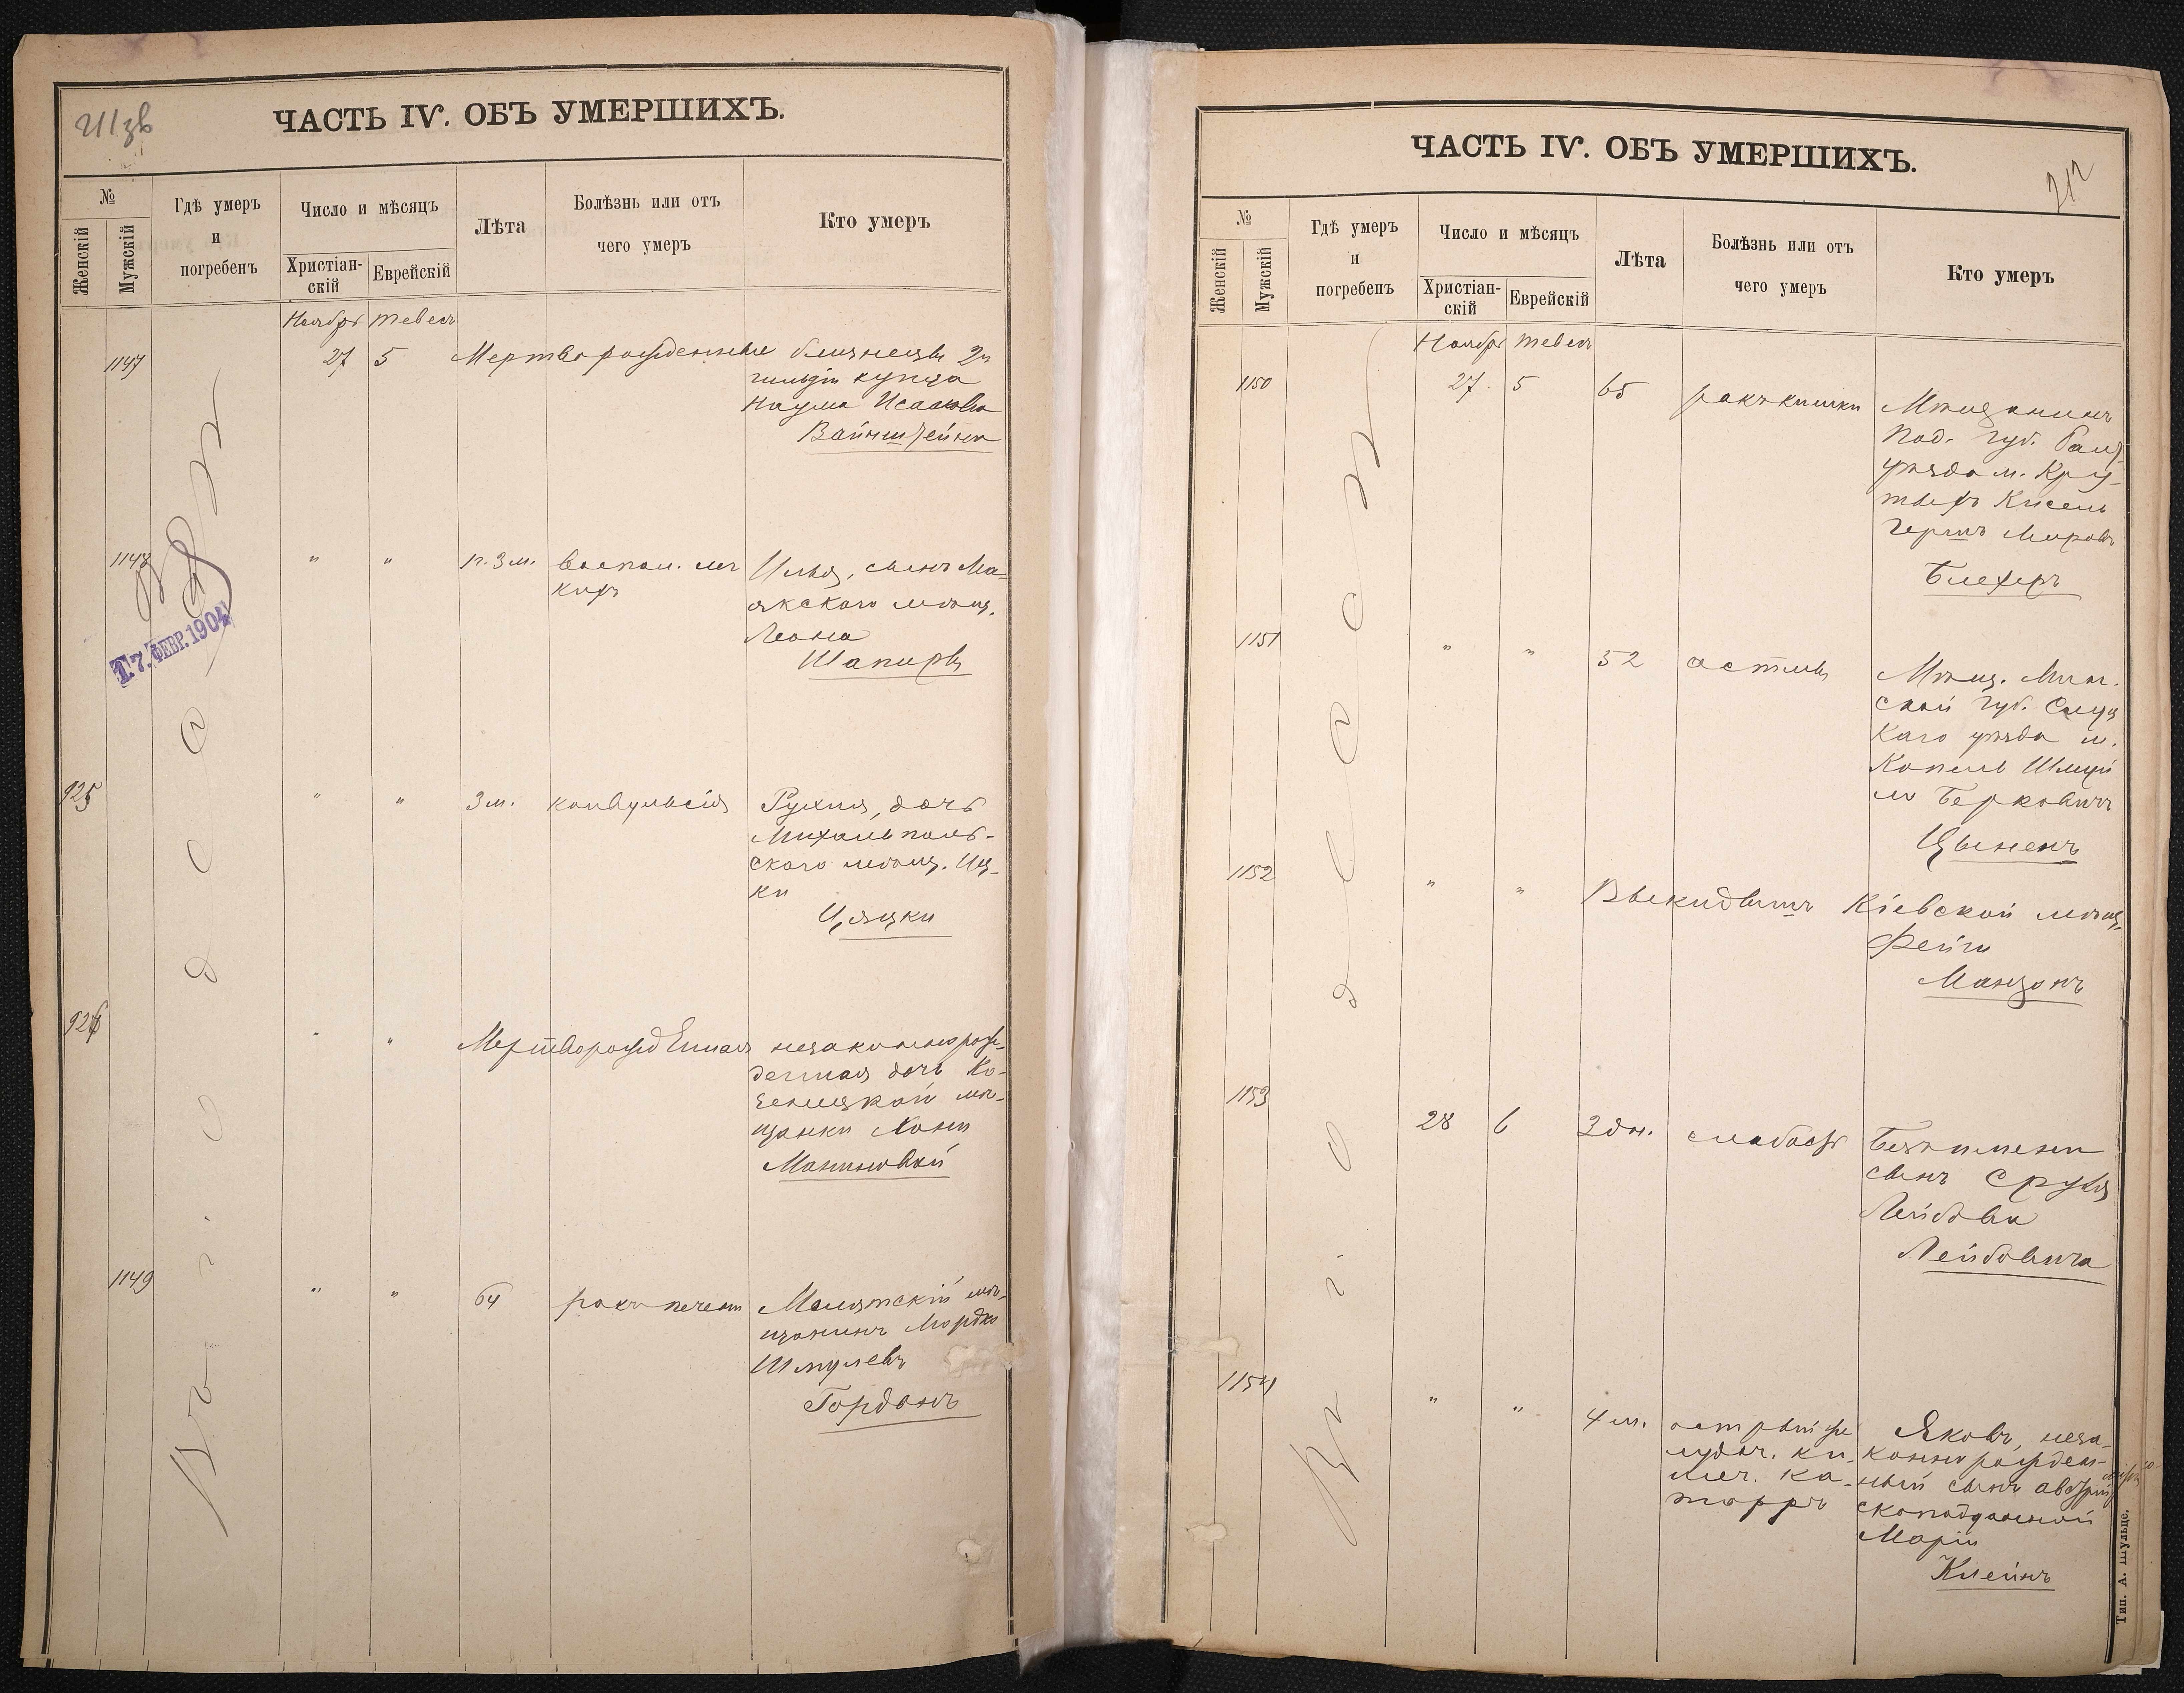 211 зв
ЧАСТЬ IV. ОБЪ УМЕРШИХЪ.
№
Женскій
Мужскій
Гдѣ умеръ
и
погребенъ
Число и мѣсяцъ
Христіан-
скій
Еврейскій
Лѣта
Болѣзнь или отъ
чего умеръ
Кто умеръ
Ноябрь Тевесъ
1147 27 5 Мертворожденные близнецы 2й
гильдіи купца
Наума Исаакова
Вайнштейна
1148 " " п. 3 м. воспал. лег
кихъ
Илья, сынъ Ма-
якскаго мѣщ.
Леона
Шапиры
17. ФЕВР. 1904
925 " " 3 м. конвульсія
Рухля, дочь
Михальполь-
скаго мѣщ. Иц-
ки
Цацки
926 " " Мертворожденная незаконнорож-
денная дочь Ко-
зеницкой мѣ-
щанки Хони
1149 " " 64 ракъ печени
мѣ-
щанинъ Мордко
Шмулевъ
Гордонъ
Въ г. Одессѣ
ЧАСТЬ IV. ОБЪ УМЕРШИХЪ.
212
№
Женскій
Мужскій
Гдѣ умеръ
и
погребенъ
Число и мѣсяцъ
Христіан-
скій
Еврейскій
Лѣта
Болѣзнь или отъ
чего умеръ
Кто умеръ
Ноябрь Тевесъ
1150 27. 5 65 ракъ кишки
Мѣщанинъ
Под. губ. Балт.
уѣзда м. Кру-
тыхъ Кисель
Гершъ Меровъ
Блехеръ
1151 " " 52 астма
Мѣщ. Мин.
ской губ. Слуц
каго уѣзда м.
Копыль
Берковичъ
Цыпенъ
1152 " " Выкидышъ Кіевской мѣщ.
Фейги
Манзонъ
1153 28 6 3 дн. слабость
Безъ имени
сынъ Сруля
Лейбова
Лейбовича
1154 " " 4 м. острый же
лудоч. ки-
шеч. ка-
тарръ
Яковъ, неза-
коннорожден-
ный сынъ австрій
скоподданной
Маріи
Клейнъ
Въ г. Одессѣ
Тип. А. Шульце.